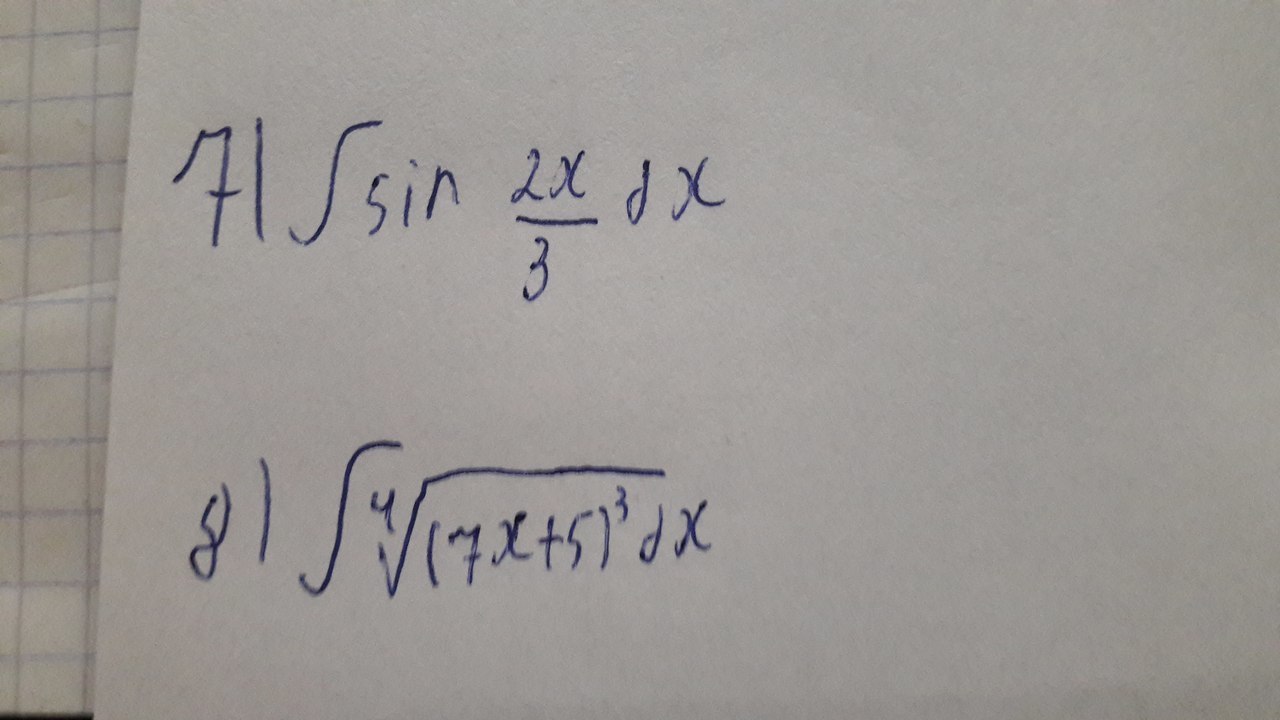 7) ∫ sin 2x/3 dx
8) ∫ ⁴√(7x+5)³ dx